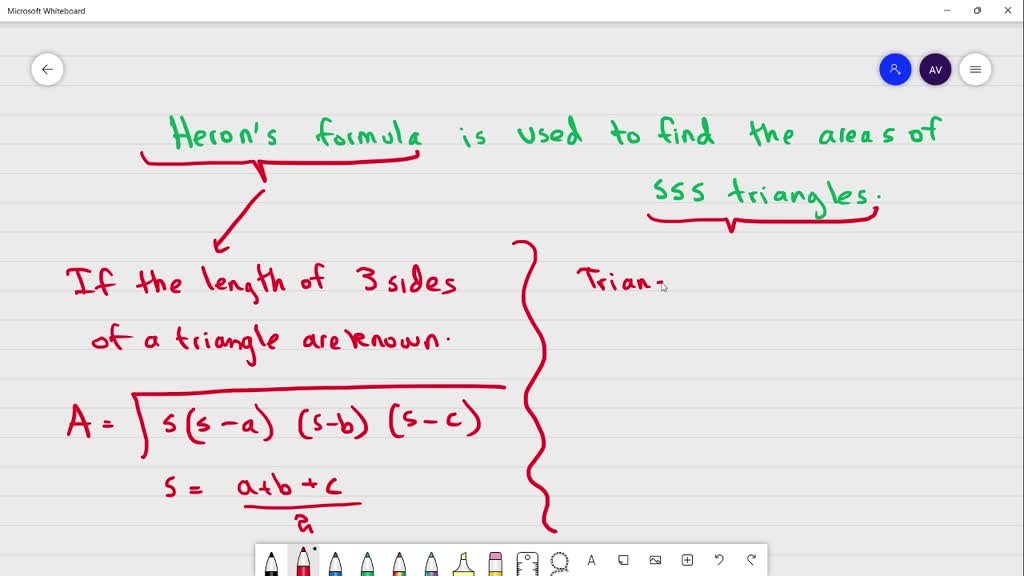 Microsoft Whiteboard
AV
Heron's formula is used to find the areas of
SSS triangles.
If the length of 3 sides
of a triangle are known.
A = √s(s-a) (s-b) (s-c)
s = a+b+c
2
Trian-
A